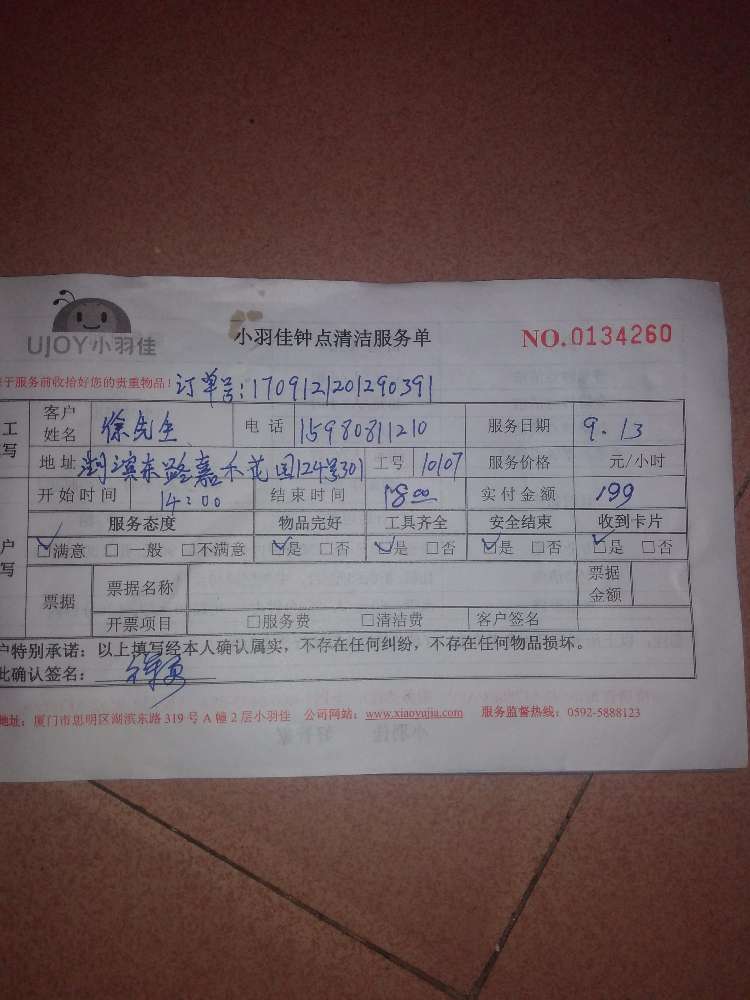 UJOY小羽佳
小羽佳钟点清洁服务单 NO.0134260
于服务前收拾好您的贵重物品! 订单号:1709121201290391
工 客户姓名 徐先生 电话 15980811210 服务日期 9.13
写 地址 湖滨东路嘉禾花园124号301 工号 10107 服务价格 元/小时
开始时间 14:00 结束时间 18:00 实付金额 199
服务态度 物品完好 工具齐全 安全结束 收到卡片
户 ☑满意 □一般 □不满意 ☑是 □否 ☑是 □否 ☑是 □否 ☑是 □否
写 票据 票据名称 票据金额
开票项目 □服务费 □清洁费 客户签名
户特别承诺:以上填写经本人确认属实,不存在任何纠纷,不存在任何物品损坏。
此确认签名:
地址:厦门市思明区湖滨东路 319 号 A 幢 2 层小羽佳 公司网站:www.xiaoyujia.com 服务监督热线:0592-5888123